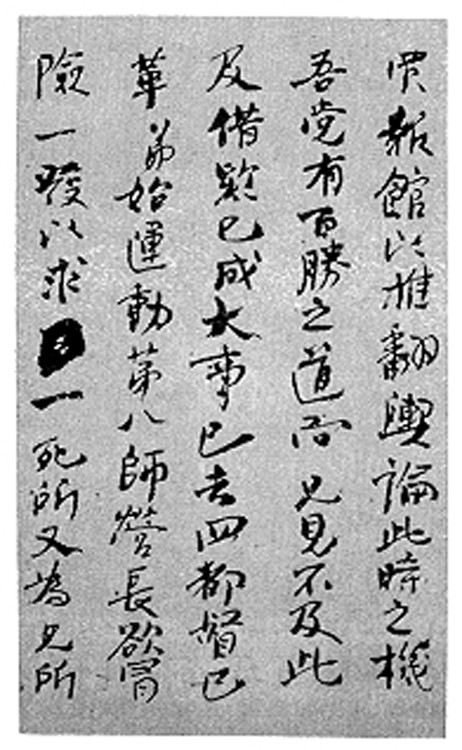 買報館以推翻輿論此時之機
吾党有百勝之道而兄見不及此
及借款已成大事已去四都督已
革弟始運動第八師營長欲冒
險一發以求一死所又為兄所